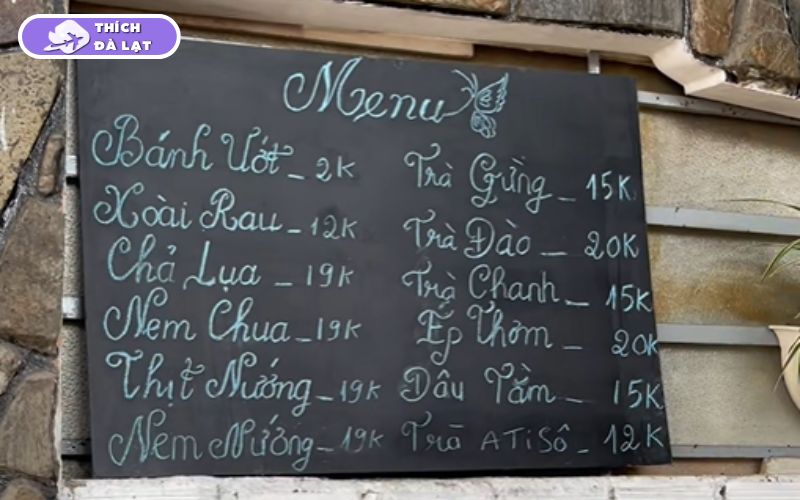 THÍCH
ĐÀ LẠT
Menu
Bánh Ướt - 2K
Xoài Rau - 12K
Chả Lụa - 19K
Nem Chua - 19K
Thịt Nướng - 19K
Nem Nướng - 19K
Trà Gừng - 15K
Trà Đào - 20K
Trà Chanh - 15K
Ép Thơm - 20K
Dâu Tằm - 15K
Trà ATiSô - 12K